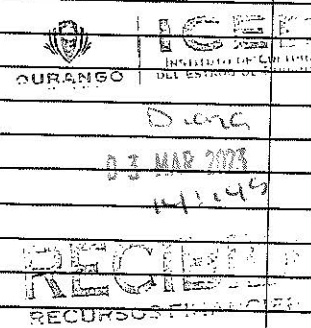 DURANGO
ICED
INSTITUTO DE CULTURA
DEL ESTADO DE
Diana
03 MAR 2023
14:45
RECIBIDO
RECURSOS FINANCIEROS